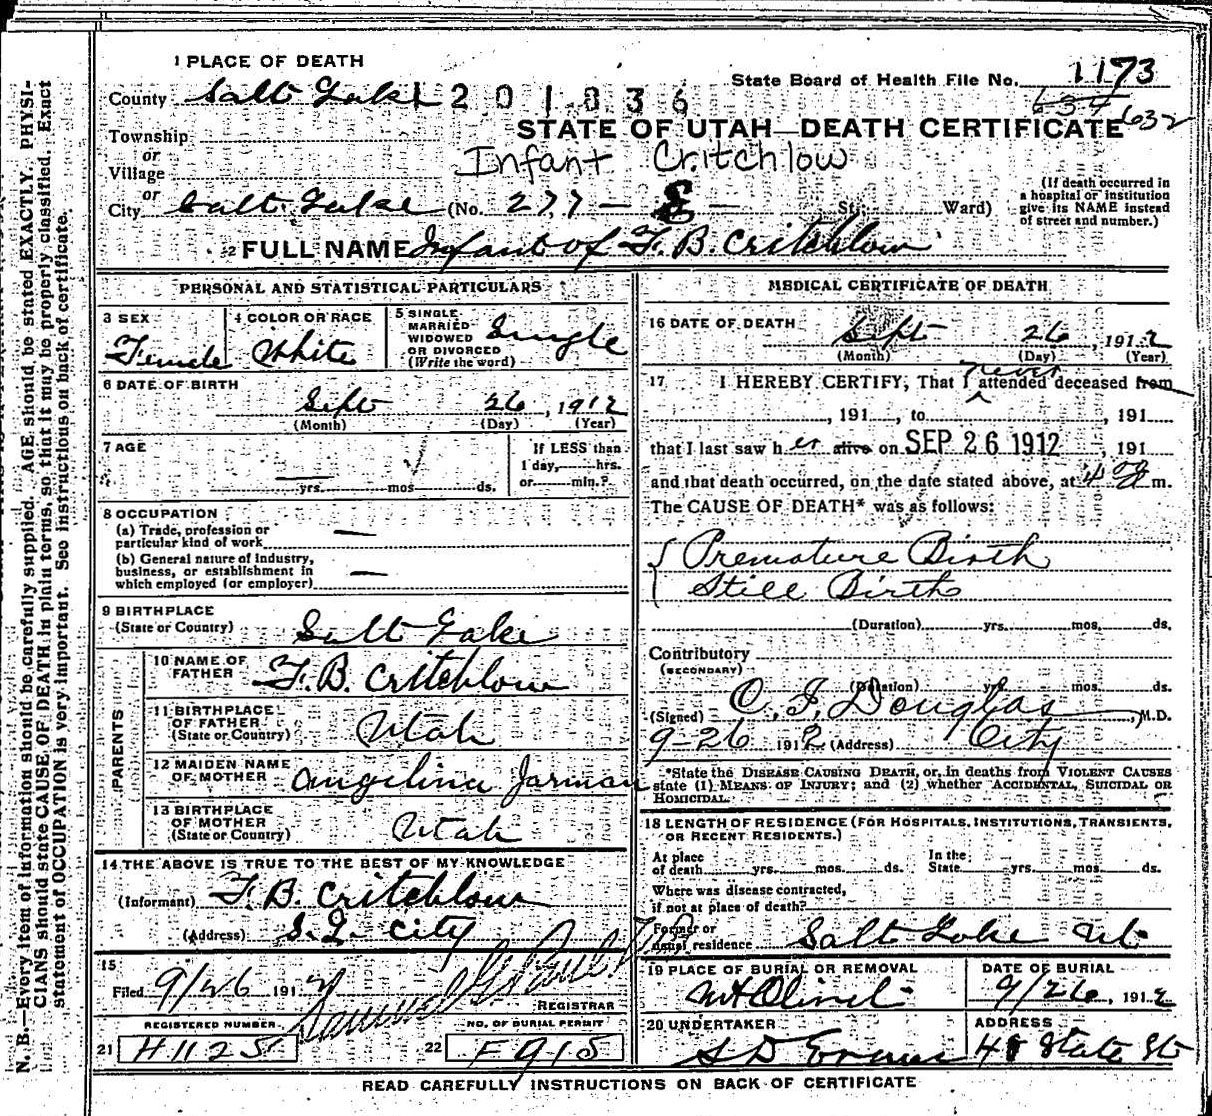 1 PLACE OF DEATH
State Board of Health File No. 1193
County Salt Lake 201836
634 632
Township
STATE OF UTAH—DEATH CERTIFICATE
or
Village
Infant Critchlow
or
City Salt Lake (No. 277 - E - St. Ward)
(If death occurred in a hospital or institution give its NAME instead of street and number.)
2 FULL NAME Infant of F. B. Critchlow
PERSONAL AND STATISTICAL PARTICULARS
3 SEX Female
4 COLOR OR RACE White
5 SINGLE MARRIED WIDOWED OR DIVORCED (Write the word) Single
6 DATE OF BIRTH
Sept 26, 1912
(Month) (Day) (Year)
7 AGE
yrs. mos. ds.
If LESS than 1 day, hrs. or min.?
8 OCCUPATION
(a) Trade, profession or particular kind of work —
(b) General nature of industry, business, or establishment in which employed (or employer) —
9 BIRTHPLACE
(State or Country) Salt Lake
PARENTS
10 NAME OF FATHER F. B. Critchlow
11 BIRTHPLACE OF FATHER (State or Country) Utah
12 MAIDEN NAME OF MOTHER Angelina Jarman
13 BIRTHPLACE OF MOTHER (State or Country) Utah
14 THE ABOVE IS TRUE TO THE BEST OF MY KNOWLEDGE
(Informant) F. B. Critchlow
(Address) S. L. City
15
Filed 9/26 1912
REGISTRAR
REGISTERED NUMBER
21 H1125
NO. OF BURIAL PERMIT
22 F915
MEDICAL CERTIFICATE OF DEATH
16 DATE OF DEATH Sept 26, 1912
(Month) (Day) (Year)
17 I HEREBY CERTIFY, That I never attended deceased from
, 191 , to , 191
that I last saw her alive on SEP 26 1912, 191
and that death occurred, on the date stated above, at 4 m.
The CAUSE OF DEATH* was as follows:
Premature Birth
Still Birth
(Duration) yrs. mos. ds.
Contributory
(SECONDARY)
(Duration) yrs. mos. ds.
(Signed) C. F. Douglas, M.D.
9-26 1912 (Address) City
*State the DISEASE CAUSING DEATH, or, in deaths from VIOLENT CAUSES
state (1) MEANS OF INJURY; and (2) whether ACCIDENTAL, SUICIDAL OR
HOMICIDAL.
18 LENGTH OF RESIDENCE (FOR HOSPITALS, INSTITUTIONS, TRANSIENTS,
OR RECENT RESIDENTS.)
At place of death yrs. mos. ds. In the State yrs. mos. ds.
Where was disease contracted,
if not at place of death?
Former or usual residence Salt Lake Ut
19 PLACE OF BURIAL OR REMOVAL Mt Olivet
DATE OF BURIAL 9/26, 1912
20 UNDERTAKER S D Evans
ADDRESS 48 State St
READ CAREFULLY INSTRUCTIONS ON BACK OF CERTIFICATE
N. B.—Every item of information should be carefully supplied. AGE should be stated EXACTLY. PHYSI-
CIANS should state CAUSE OF DEATH in plain terms, so that it may be properly classified. Exact
statement of OCCUPATION is very important. See instructions on back of certificate.